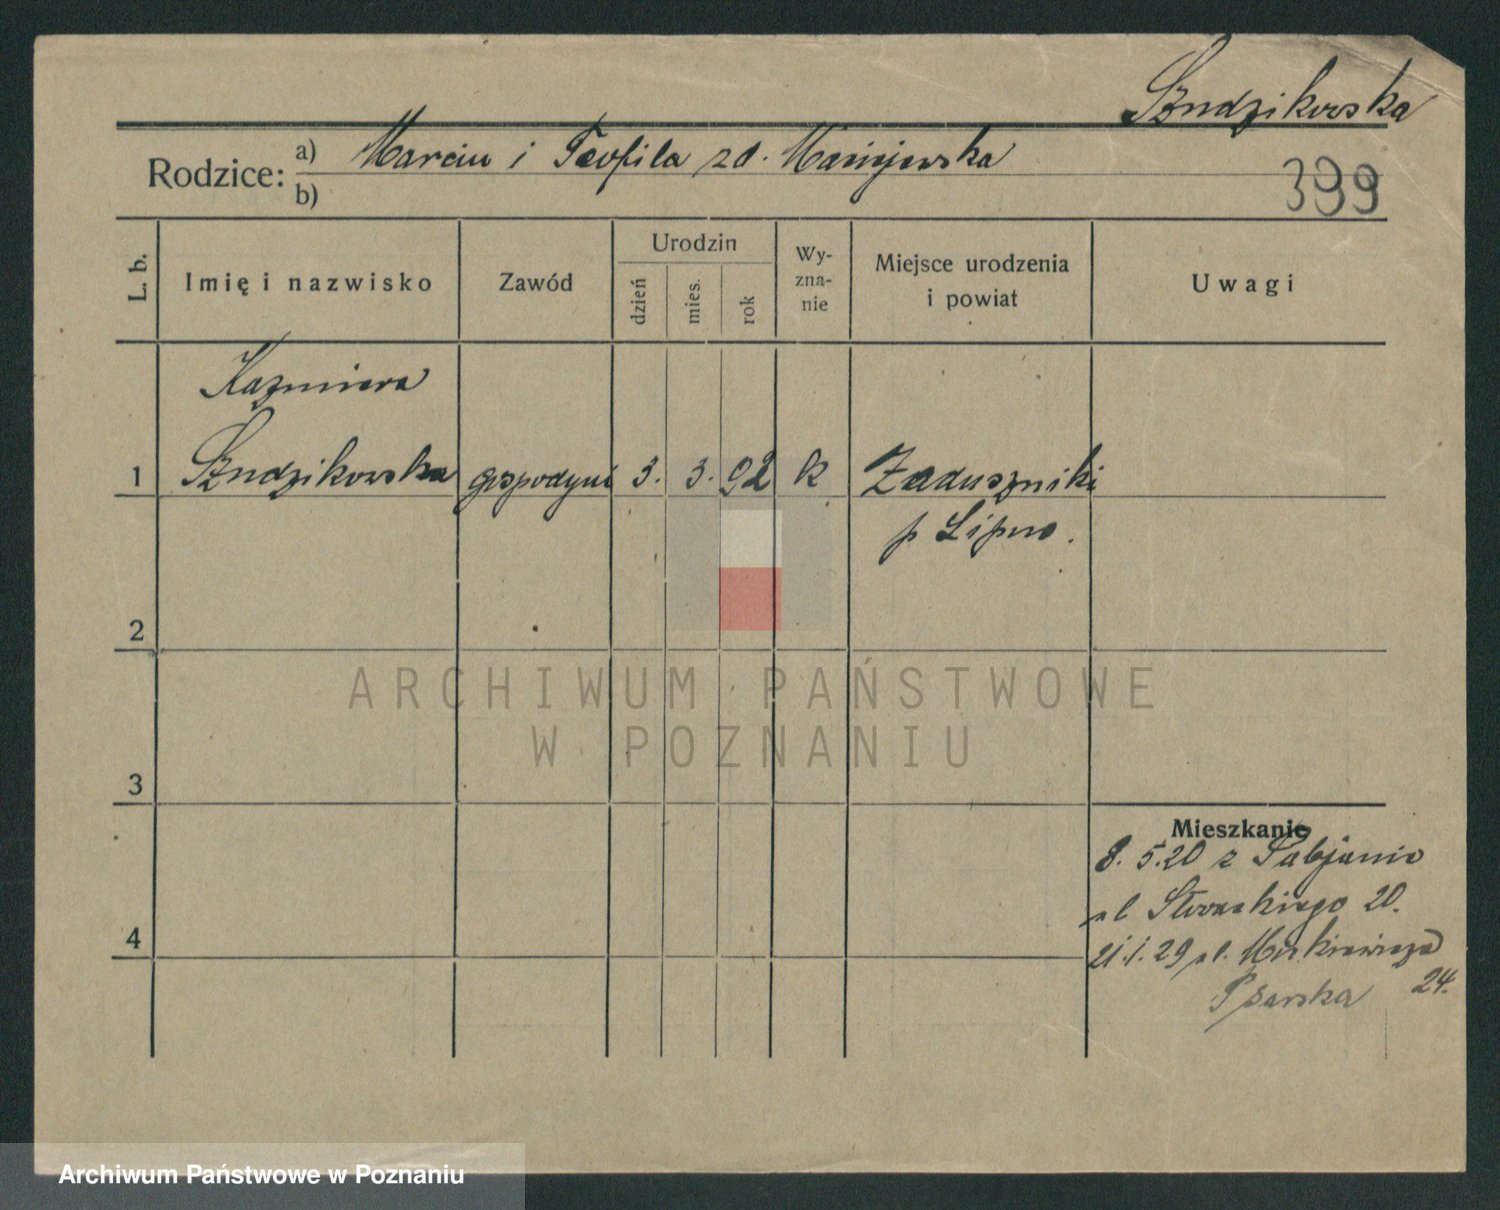 Szudzikowska
Rodzice: a) Marcin i Teofila zd. Maciejewska
b)
399
L. b.
Imię i nazwisko
Zawód
Urodzin
dzień
mies.
rok
Wy-
zna-
nie
Miejsce urodzenia
i powiat
Uwagi
Kazmiera
1 Szudzikowska gospodyni 3. 3. 92 k Zaduszniki
p Lipno.
2
ARCHIWUM PAŃSTWOWE
W POZNANIU
3
Mieszkanie
8. 5.20 z Pabjanic
ul Słowackiego 20.
4
21.1.29 ul. Mickiewicza
24.
Psarska
Archiwum Państwowe w Poznaniu